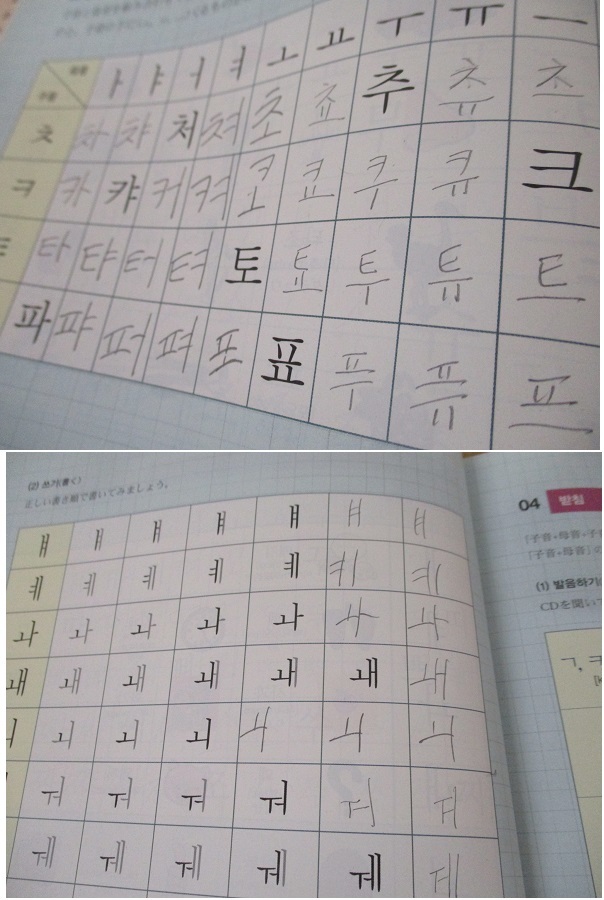 ㅏ ㅑ ㅓ ㅕ ㅗ ㅛ ㅜ ㅠ ㅡ
ㅊ 차 챠 처 쳐 초 쵸 추 츄 츠
ㅋ 카 캬 커 켜 코 쿄 쿠 큐 크
ㅌ 타 탸 터 텨 토 툐 투 튜 트
파 퍄 퍼 펴 포 표 푸 퓨 프
(2) 쓰기(書く)
正しい書き順で書いてみましょう。
ㅒ ㅒ ㅒ ㅒ ㅒ ㅒ ㅒ
ㅖ ㅖ ㅖ ㅖ ㅖ ㅖ ㅖ
ㅘ ㅘ ㅘ ㅘ ㅘ ㅘ ㅘ
ㅙ ㅙ ㅙ ㅙ ㅙ ㅙ ㅙ
ㅚ ㅚ ㅚ ㅚ ㅚ ㅚ
ㅝ ㅝ ㅝ ㅝ ㅝ ㅝ
ㅞ ㅞ ㅞ ㅞ ㅞ ㅞ
04 받침
[子音+母音+子
「子音+母音」の
(1) 발음하기(
CDを聞いて
ㄱ, ㅋ